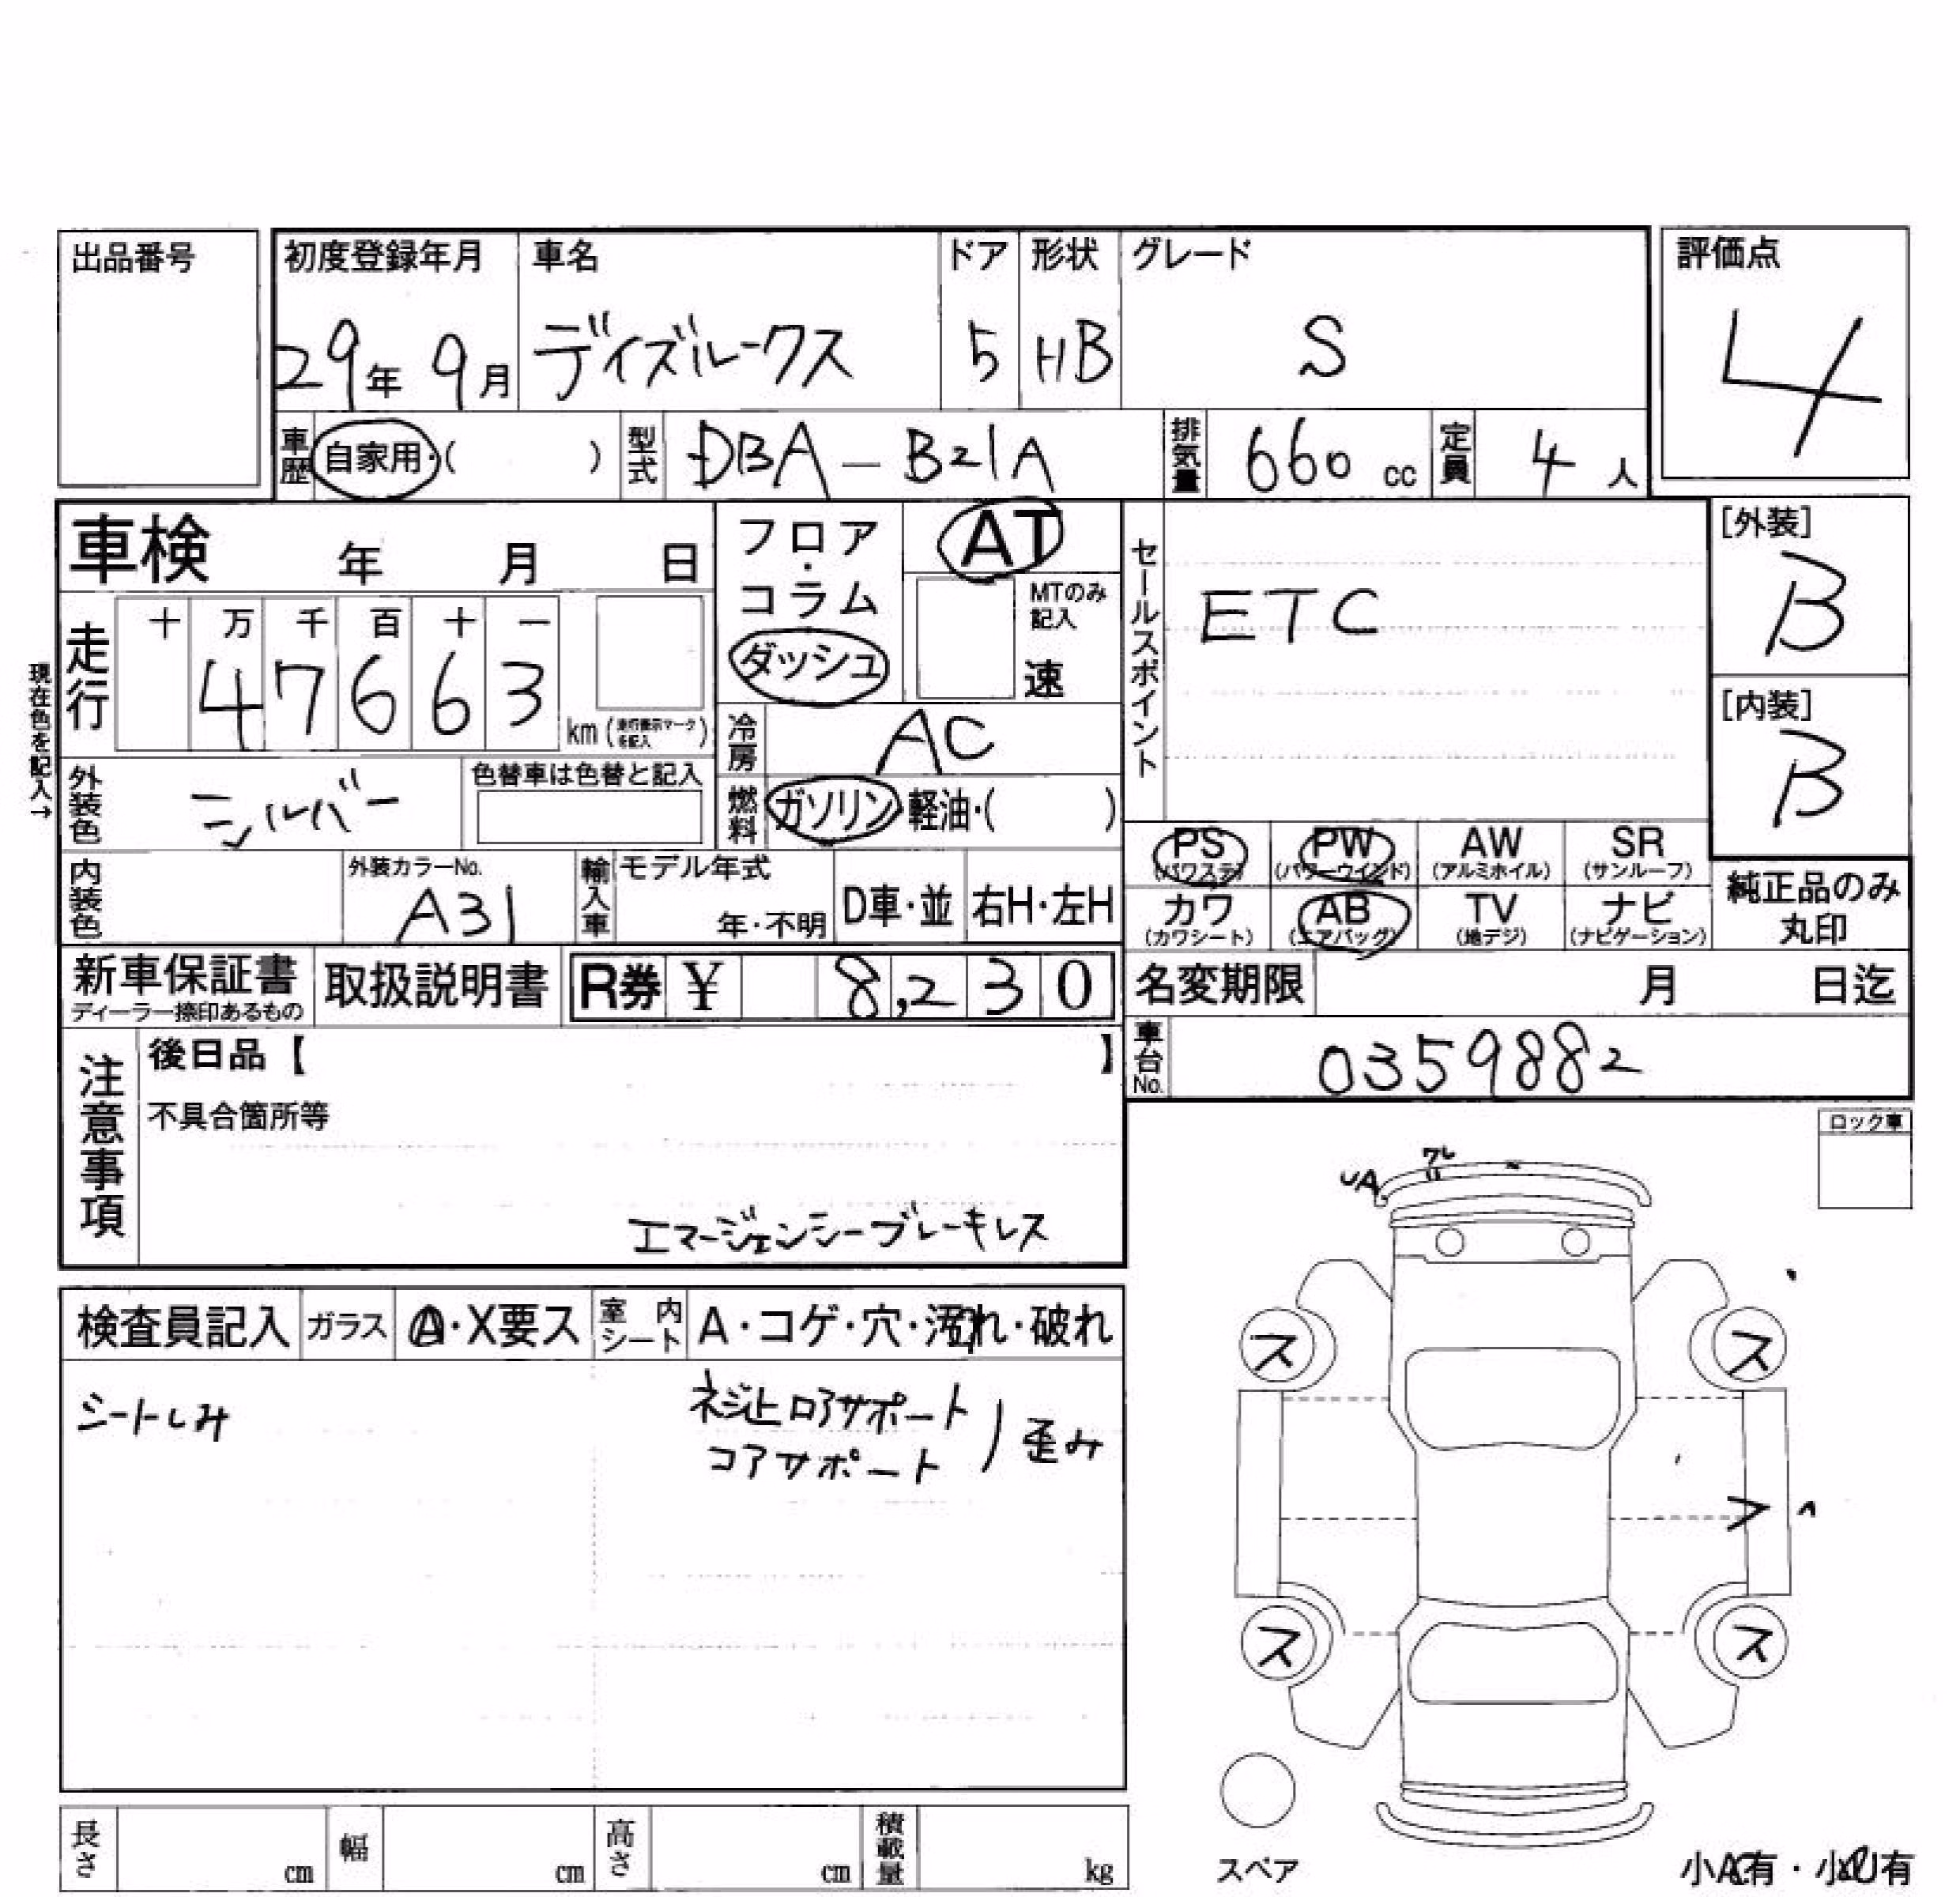 出品番号
初度登録年月 車名 ドア 形状 グレード 評価点
29年 9月 デイズルークス 5 HB S 4
車歴 自家用・( ) 型式 DBA-B21A 排気量 660 cc 定員 4 人
車検 年 月 日
フロア・コラム ダッシュ
AT
MTのみ記入 速
セールスポイント
ETC
[外装]
B
[内装]
B
現在色を記入→
走行 十 万 千 百 十 一
4 7 6 6 3 km (走行表示マークを記入)
冷房 AC
外装色 シルバー 色替車は色替と記入
燃料 ガソリン・軽油・( )
PS (パワステ) PW (パワーウインド) AW (アルミホイル) SR (サンルーフ)
カワ (カワシート) AB (エアバッグ) TV (地デジ) ナビ (ナビゲーション)
純正品のみ丸印
内装色 外装カラーNo. A31 輸入車 モデル年式 年・不明 D車・並 右H・左H
新車保証書 ディーラー捺印あるもの 取扱説明書 R券 ¥ 8,230
名変期限 月 日迄
車台No. 0359882
注意事項
後日品【 】
不具合箇所等
エマージェンシーブレーキレス
ロック車
UA
ワレ
検査員記入 ガラス A・X要ス 室内シート A・コゲ・穴・汚れ・破れ
シートしみ
ネジ止ロアサポート
コアサポート
歪み
ス ス
ス ス
スペア
小A有・小U有
長さ cm 幅 cm 高さ cm 積載量 kg